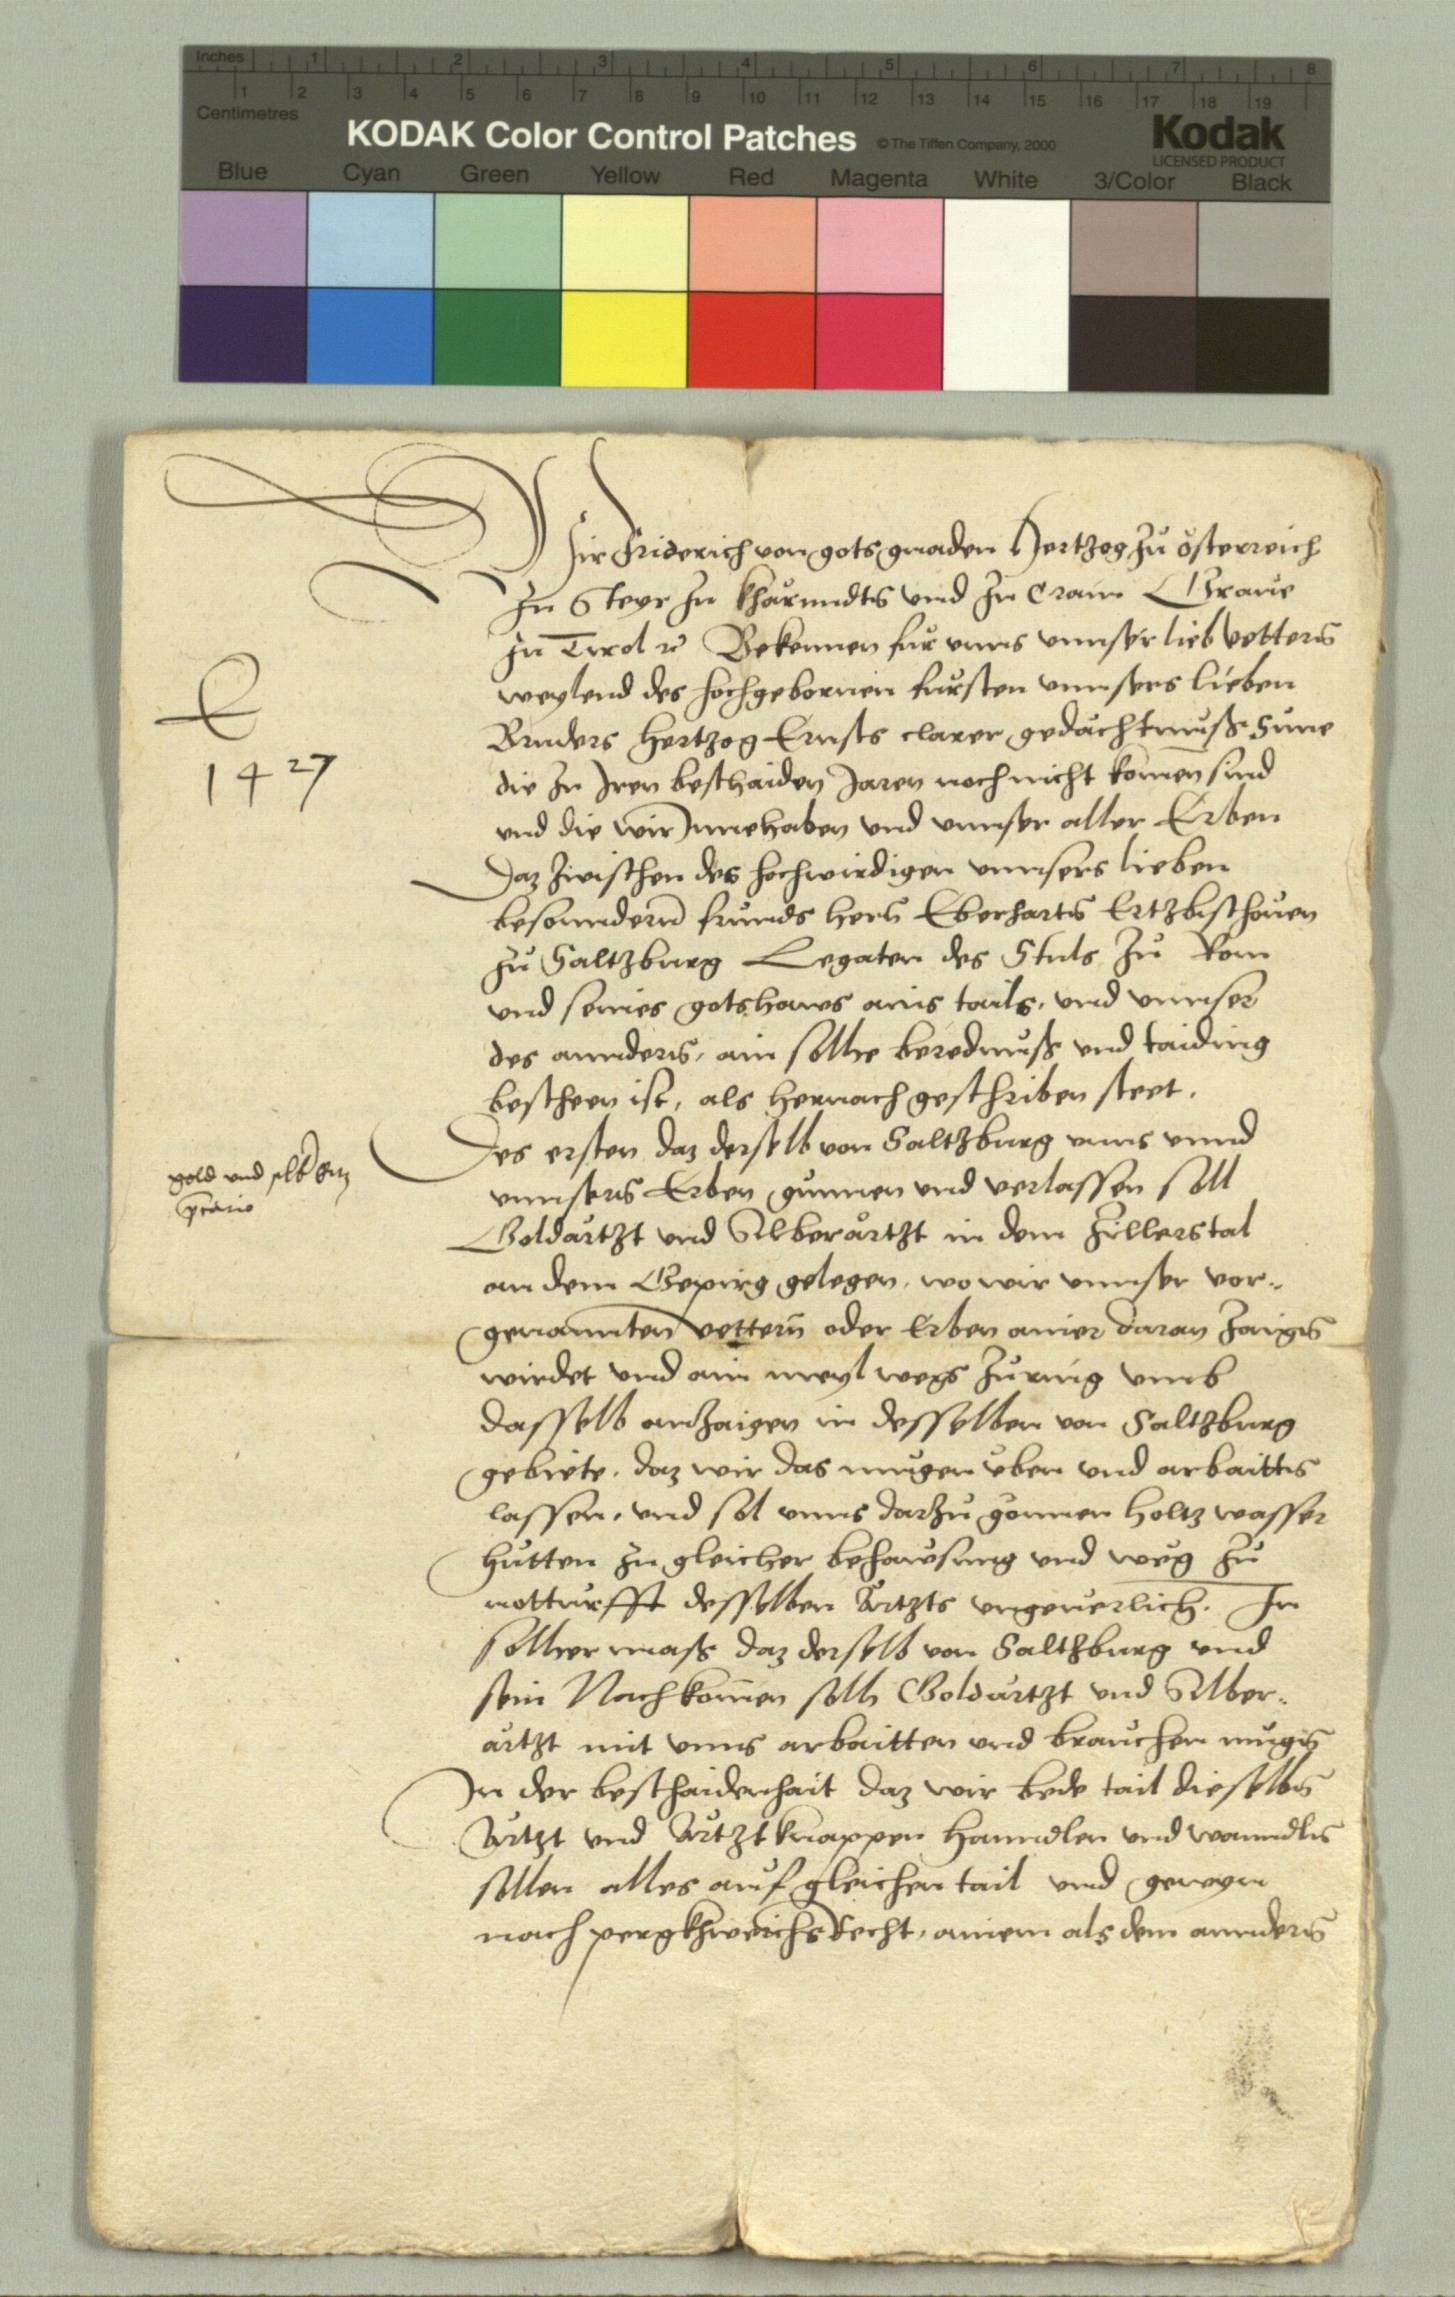 Inches 1 2 3 4 5 6 7 8
1 2 3 4 5 6 7 8 9 10 11 12 13 14 15 16 17 18 19
Centimetres
KODAK Color Control Patches © The Tiffen Company, 2000 Kodak
LICENSED PRODUCT
Blue Cyan Green Yellow Red Magenta White 3/Color Black
Wir Friderich von gots gnaden Hertzog zů österreich
zu Steyr zu khärnndts vnd zu Crain Graue
zu Tirol Bekennen für vnns vnnser lieb vettern
weylend des hochgebornnen fürsten vnnsers lieben
Brůders Hertzog Ernsts clarer gedächtnůß Süne
die zu Jren beschaiden Jaren noch nicht komen sind
vnd die wir Jnnehaben vnd vnnser aller Erben
1427
Daz zwischen des hochwirdigen vnnsers lieben
besonndern frunds hern Eberharts Ertzbischouen
zů Saltzburg Legaten des Stuls zů Rom
vnd seines gotshaws ains tails, vnd vnnser
des anndern, ain solhe berednuß vnd taiding
bescheen ist, als hernach geschriben steet.
Des ersten daz derselb von Saltzburg vnns vnnd
vnnsern Erben günnen vnd verlassen soll
gold vnd silber
Goldärtzt vnd Silberärtzt in dem Zillerstal
an dem Gepirg gelegen, wo wir vnnser vor-
genannten vettern oder Erben ainer daran zaigen
wirdet vnd ain meyl wegs zůring vmb
dasselb anzaigen in desselben von Saltzburg
gebiete, daz wir das mügen üben vnd arbaitten
lassen, vnd sol vnns darzů günnen holtz wasser
hütten zu gleicher behawsung vnd weg zů
notturfft desselben Ärtzts vngeuerlich. In
solher maß daz derselb von Saltzburg vnd
sein Nachkomen solh Goldärtzt vnd Silber-
ärtzt mit vnns arbaitten vnd brauchen mugen
In der beschaidenhait daz wir bede tail dieselben
Ärtzt vnd Ärtztknappen hanndlen vnd wanndlen
sollen alles auf gleichen tail vnd gewyn
nach pergkhwerchs Recht, ainem als dem anndern